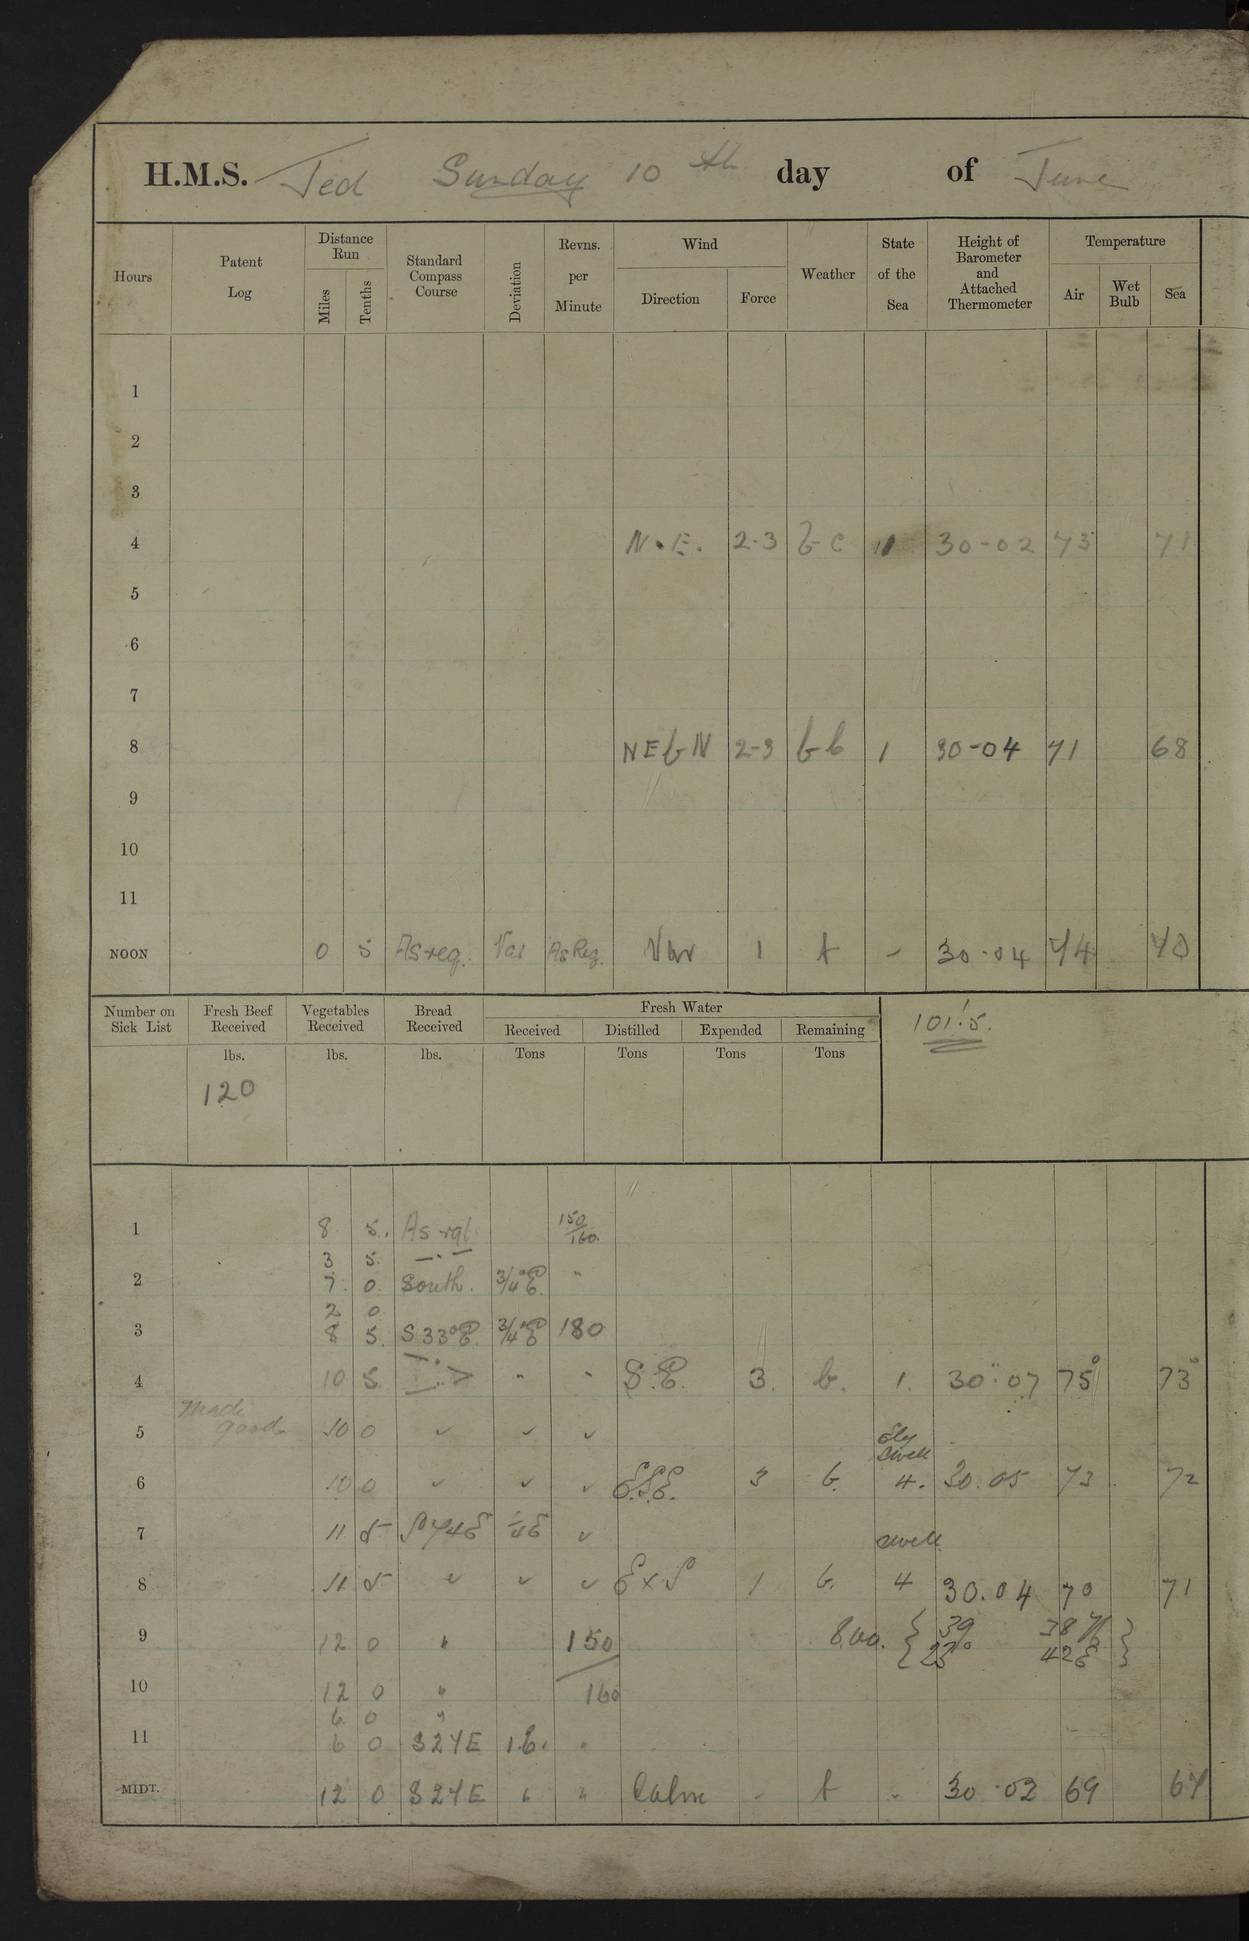 H.M.S. Ted Sunday 10th day of June
Hours Patent Log Distance Run Miles Tenths Standard Compass Course Deviation Revns. per Minute Wind Direction Force Weather State of the Sea Height of Barometer and Attached Thermometer Temperature Air Wet Bulb Sea
1
2
3
4 N.E. 2-3 b c 1 30-02 73 71
5
6
7
8 NEbN 2-3 bc 1 30-04 71 68
9
10
11
NOON 0 5 As req. Var As Req. Var 1 f - 30.04 74 70
Number on Sick List Fresh Beef Received Vegetables Received Bread Received Fresh Water Received Distilled Expended Remaining
lbs. lbs. lbs. Tons Tons Tons Tons
101.5.
120
1 8 5. As rqt 150/160.
3 5. -.-
2 7. 0. South. 3/4°E. "
2 0
3 8 5. S33°E. 3/4°E 180
4 10 5. " " S.E. 3. b. 1. 30.07 75° 73°
Made good
5 10 0 " " "
Ely swell
6 10 0 " " " ESE. 3 b. 4. 30.05 73 72
7 11 5 S74E "
swell
8 11 5 " " " ExS 1 b. 4 30.04 70 71
9 12 0 " 150 8.00. { 39 38 N }
{ 23° 42 E }
10 12 0 " 160
6 0 "
11 6 0 S27E 1.E. "
MIDT. 12 0 S27E " " Calm - f - 30.02 69 67